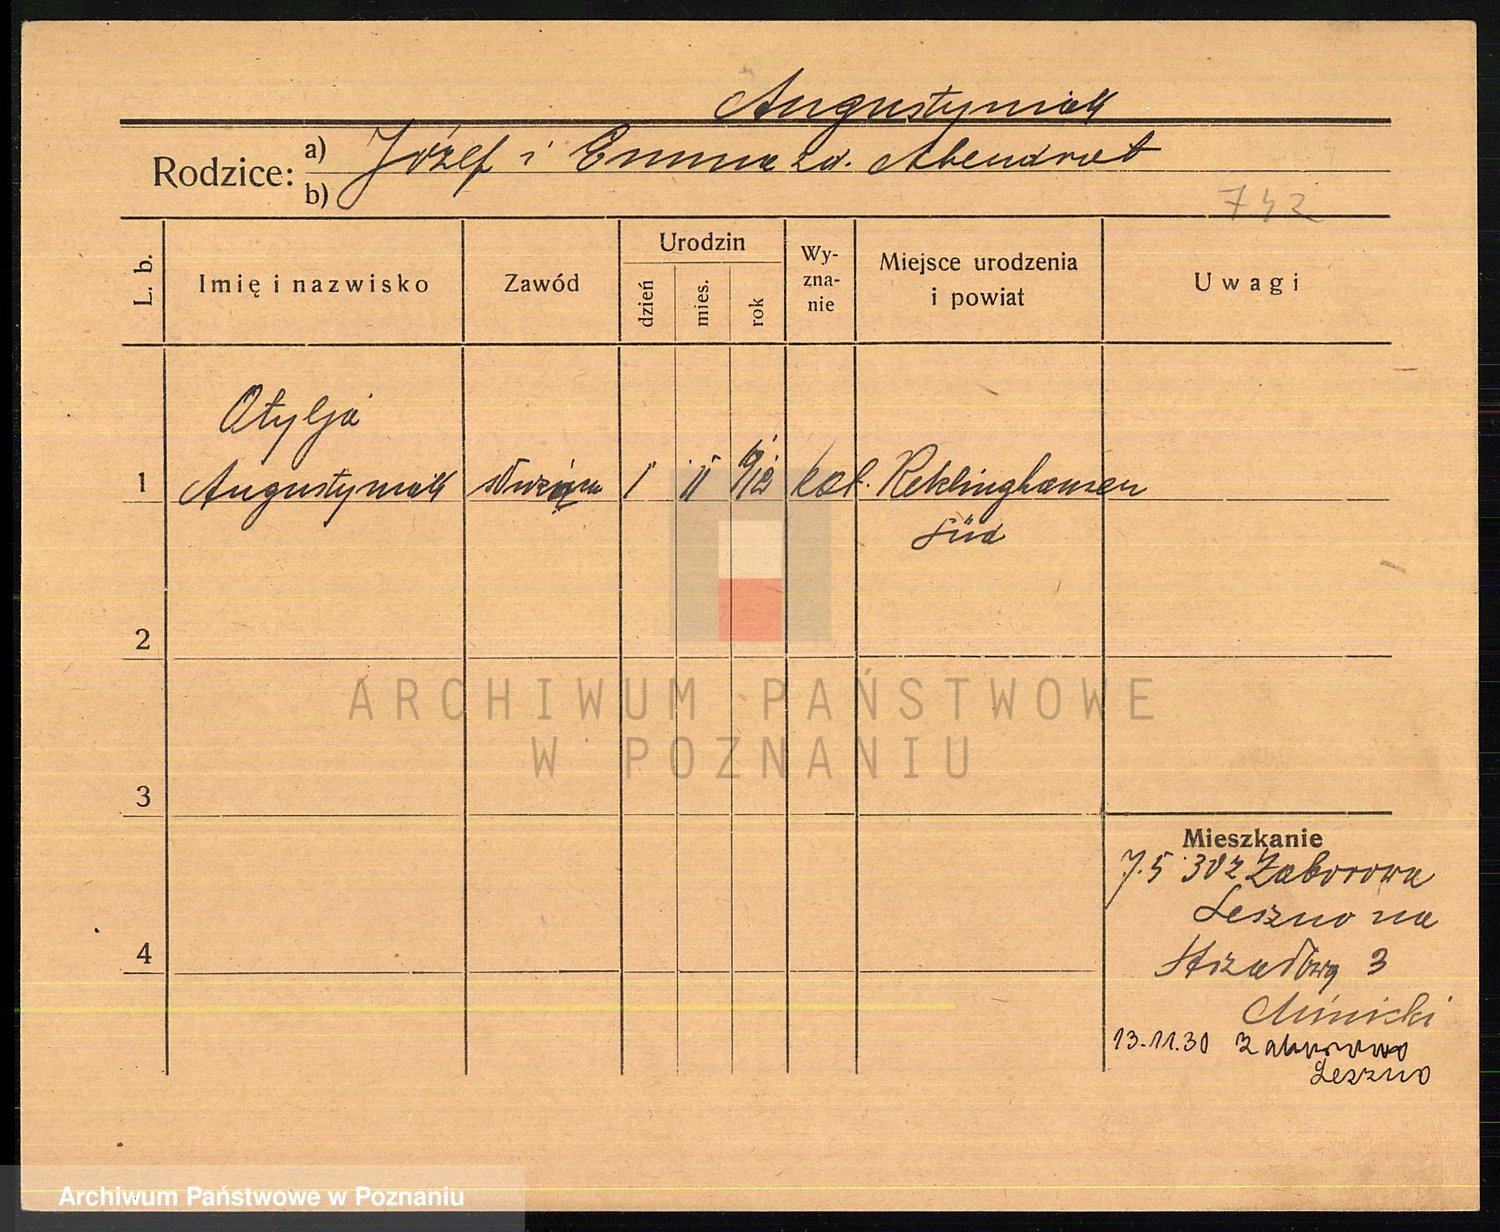 Augustyniak
Rodzice: a) Józef i Emma zd. Abendrot
b)
742
L. b.
Imię i nazwisko
Zawód
Urodzin
dzień
mies.
rok
Wy-
zna-
nie
Miejsce urodzenia
i powiat
Uwagi
Otylja
1 Augustyniak służąca 1 11 912 kat. Reklinghausen
Süd
2
3
4
Mieszkanie
7.5 30 z Zaborowa
Leszno na
3
13.11.30 Zaborowo
Leszno
ARCHIWUM PAŃSTWOWE
W POZNANIU
Archiwum Państwowe w Poznaniu